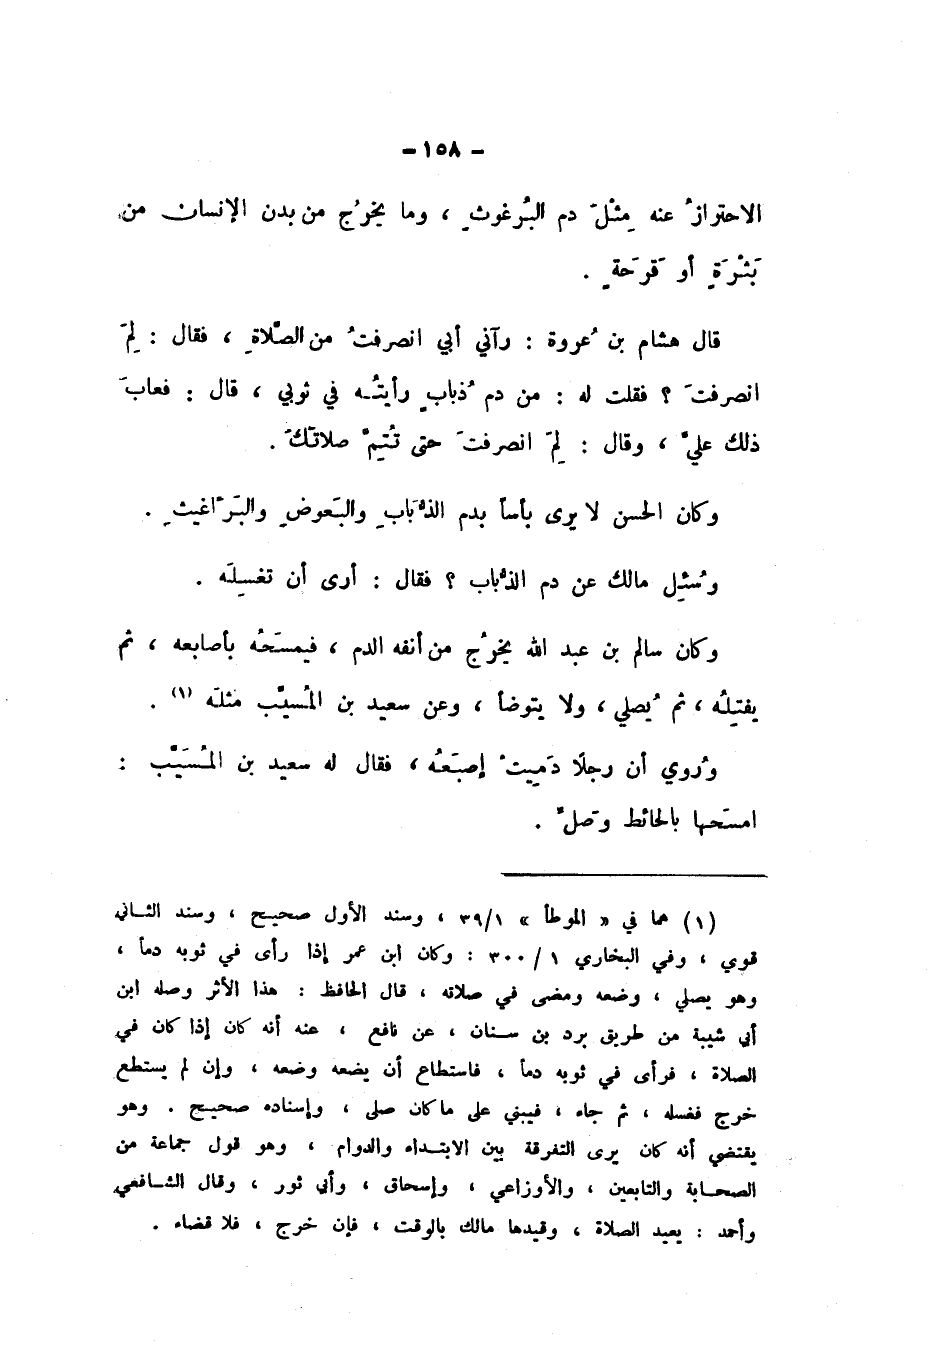 - ١٥٨ -
الاحترازُ عنه مِثْلَ دم البُرغوثِ ، وما يخرُج من بدن الإنسان من
بَثْرَةٍ أو قَرحَةٍ .
قال هشام بن عُروة : رآني أبي انصرفتُ من الصَّلاةِ ، فقال : لِمَ
انصرفتَ ؟ فقلت له : من دم ذُبابٍ رأيتُه في ثوبي ، قال : فعابَ
ذلك عليَّ ، وقال : لِمَ انصرفتَ حتى تُتِمَّ صلاتَكَ .
وكان الحسن لا يرى بأساً بدم الذُّبَابِ والبَعوضِ والبَرَاغيثِ .
وسُئِل مالك عن دم الذُّباب ؟ فقال : أرى أن تغسِلَه .
وكان سالم بن عبد الله يخرُج من أنفه الدم ، فيمسَحُه بأصابعه ، ثم
يفتِلُه ، ثم يُصلي ، ولا يتوضأ ، وعن سعيد بن المُسيَّب مثلَه (١) .
ورُوي أن رجلًا دَمِيتْ إصبَعُه ، فقال له سعيد بن المُسَيَّب :
امسَحها بالحائط وصَلِّ .
(١) هما في « الموطأ » ٣٩/١ ، وسند الأول صحيح ، وسند الثاني
قوي ، وفي البخاري ١ / ٣٠٠ : وكان ابن عمر إذا رأى في ثوبه دماً ،
وهو يصلي ، وضعه ومضى في صلاته ، قال الحافظ : هذا الأثر وصله ابن
أبي شيبة من طريق برد بن سنان ، عن نافع ، عنه أنه كان إذا كان في
الصلاة ، فرأى في ثوبه دماً ، فاستطاع أن يضعه وضعه ، وإن لم يستطع
خرج فغسله ، ثم جاء ، فيبني على ما كان صلى ، وإسناده صحيح . وهو
يقتضي أنه كان يرى التفرقة بين الابتداء والدوام ، وهو قول جماعة من
الصحابة والتابعين ، والأوزاعي ، وإسحاق ، وأبي ثور ، وقال الشافعي
وأحمد : يعيد الصلاة ، وقيدها مالك بالوقت ، فإن خرج ، فلا قضاء .